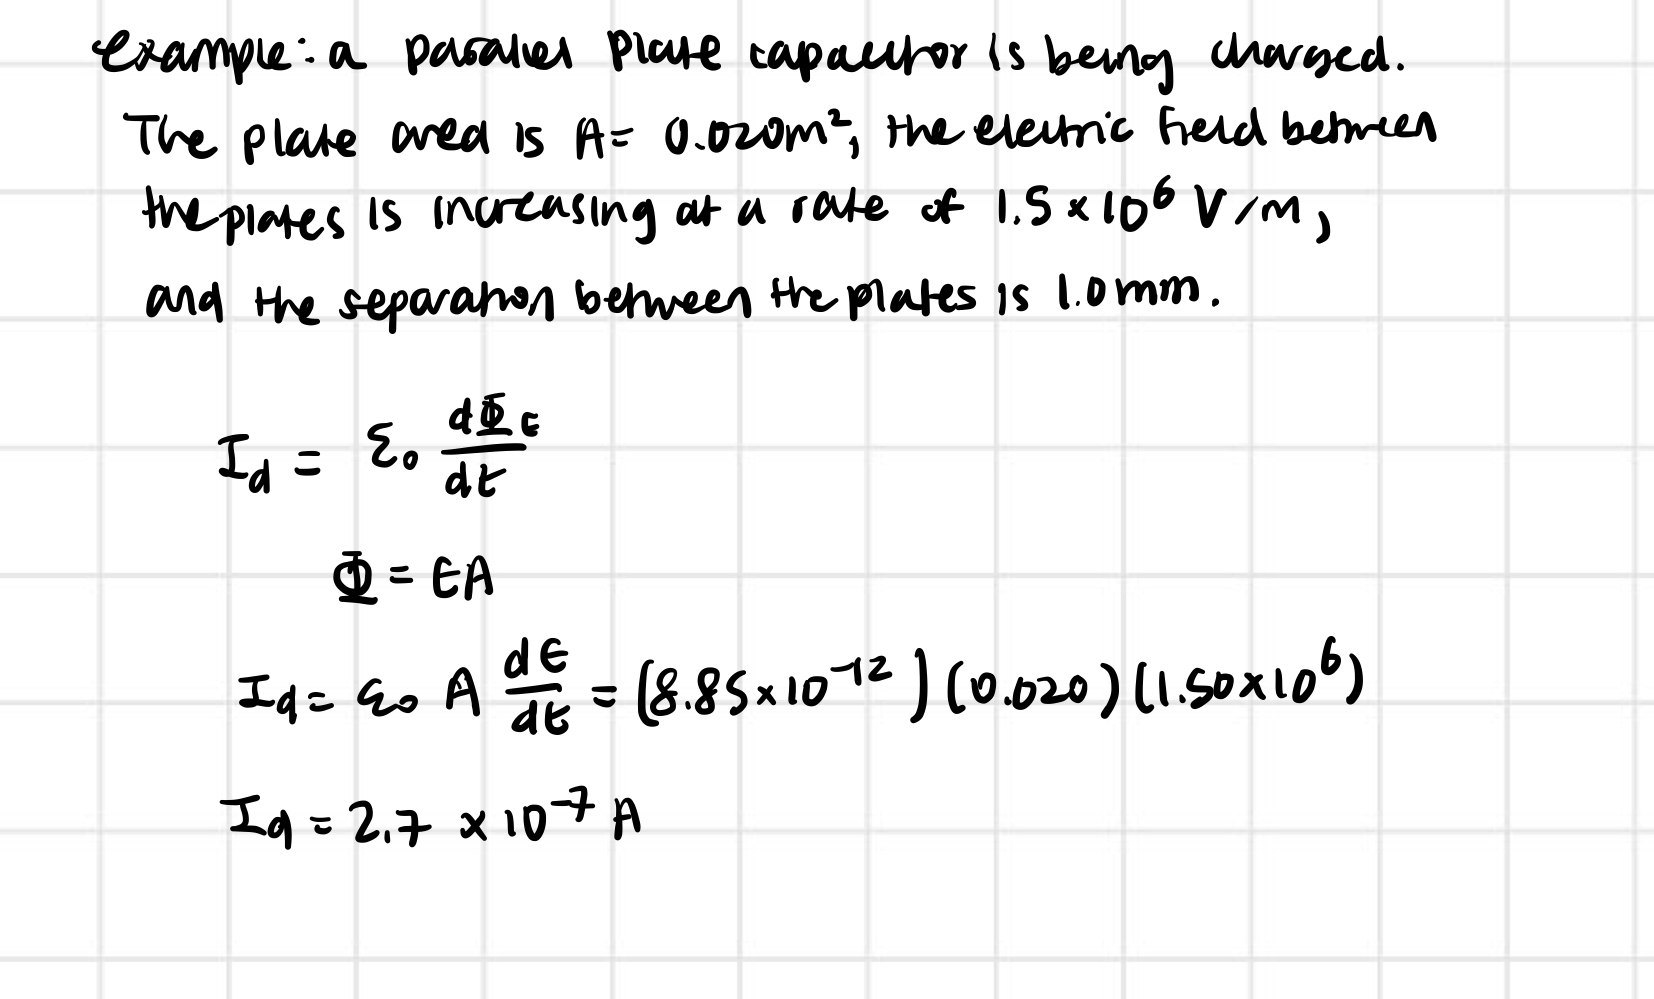 example: a parallel plate capacitor is being charged.
The plate area is A= 0.020m², the electric field between
the plates is increasing at a rate of 1.5 × 10⁶ V/m,
and the separation between the plates is 1.0mm.
I_d = ε₀ dΦ_E/dt
Φ = EA
I_d = ε₀ A dE/dt = (8.85×10⁻¹²)(0.020)(1.50×10⁶)
I_d = 2.7 ×10⁻⁷ A